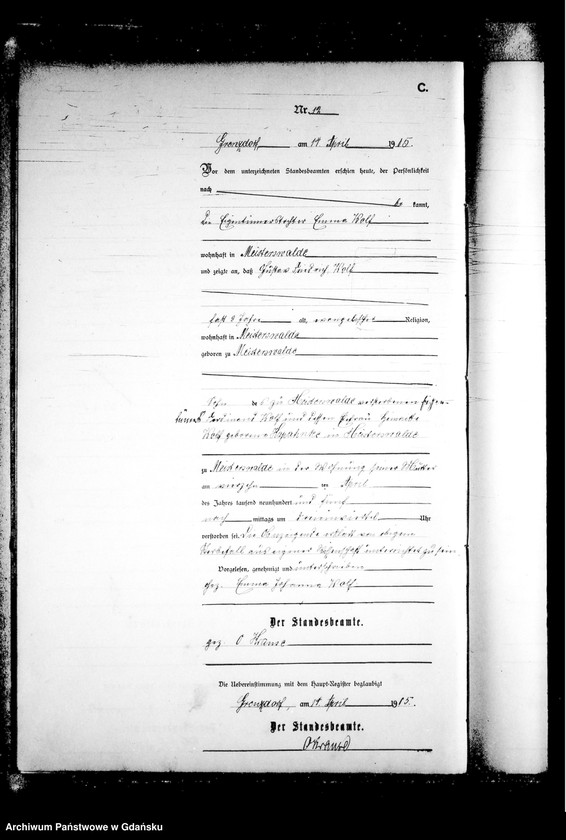 C.
Nr. 12
Grenzdorf am 11 April 1915.
Vor dem unterzeichneten Standesbeamten erschien heute, der Persönlichkeit
nach
be kannt,
die Eigentümerstochter Emma Wolf
wohnhaft in Meisterswalde
und zeigte an, daß Gustav Friedrich Wolf
fast 9 Jahre alt, evangelischer Religion,
wohnhaft in Meisterswalde
geboren zu Meisterswalde
Sohn des zu Meisterswalde verstorbenen Eigen-
tümers Ferdinand Wolf und dessen Ehefrau
Wolf geborene in Meisterswalde
zu Meisterswalde in der Wohnung seiner Mutter
am ten April
des Jahres tausend neunhundert und fünf
nach mittags um Uhr
verstorben sei. Die Anzeigende erklärt von obigem
Sterbefall aus eigener Wissenschaft unterrichtet zu sein.
Vorgelesen, genehmigt und unterschrieben
gez. Emma Johanna Wolf
Der Standesbeamte.
gez. O Krause
Die Uebereinstimmung mit dem Haupt-Register beglaubigt
Grenzdorf, am 11 April 1915.
Der Standesbeamte.
O Krause
Archiwum Państwowe w Gdańsku